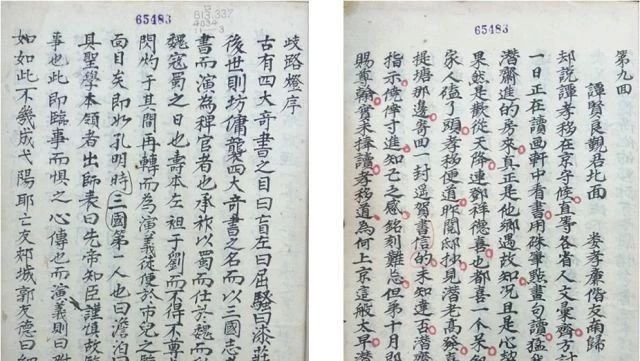 65483
B13.337
4034
歧路燈序
古有四大奇書之目曰盲左曰屈騷曰漆莊
後世則坊傭襲四大奇書之名而以三國志
書而演為稗官者也承祚以蜀而仕於魏而
魏寇蜀之日也壽本左袒于劉而不得不尊
閃灼于其間再轉而為演義徒便於市兒之
面目矣即如孔明時三國第一人也曰澹泊
具聖學本領者出師表曰先帝知臣謹慎故
事也此即臨事而懼之心傳也而演義則曰
如如此不幾成弋陽耶亡友郟城郭友德曰
65483
第九回
譚賢良觀君北面 婁孝廉偕友南歸
却說譚孝移在京守候直等各省人文彙齊方
一日正在讀畫軒中看書用硃筆點畫句讀猛
潛齋進的房來真正是他鄉遇故知況且是心
果然是歡從天降連鄧祥德喜也都喜一個呆
家人磕了頭孝移便道昨閱邸抄見潛老高發
提塘那邊寄回一封遥賀書信的未知達否潛齋
指示僥倖寸進知己之感銘刻難忘但第十月即
賜尊翰實未捧讀孝移道為何上京這般太早潛